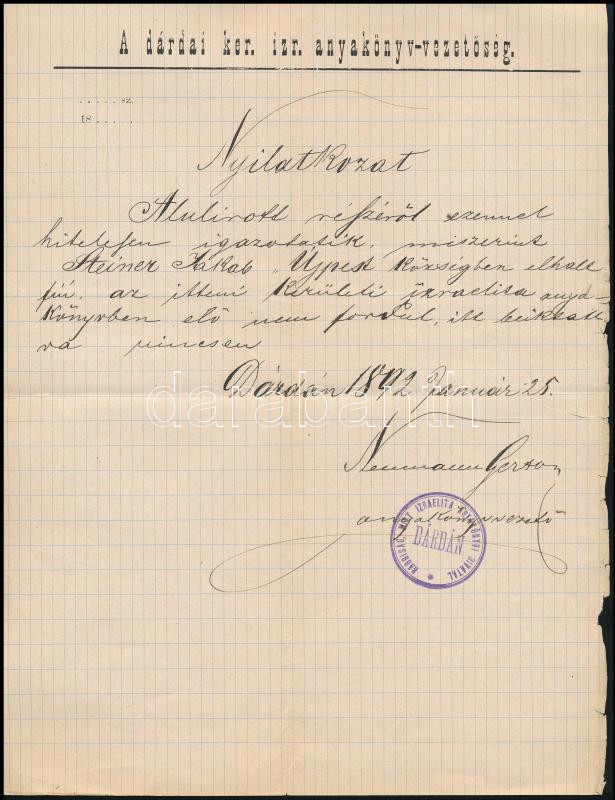 A dárdai ker. izr. anyakönyv-vezetőség.
.....sz.
18.....
Nyilatkozat
Alulirott részéről ezennel
hitelesen igazoltatik, miszerint
Steiner Jakab Újpest községben elhalt
fiú, az itteni kerületi izraelita anya-
könyvben elő nem fordul, itt beiktat
va nincsen
Dárdán 1892 Január 25.
Neumann Gerson
anyakönyvvezető
IZRAELITA
HIVATAL
DÁRDÁN
darabanth